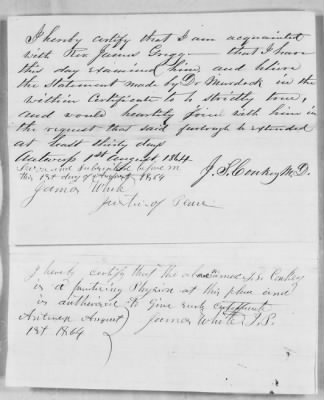 I hereby certify that I am acquainted
with Rev James Gregg that I have
this day examined him and believe
the Statement made by Dr Murdock in the
within Certificate to be strictly true,
and would heartily join with him in
the request that said furlough be extended
at least thirty days
Antwerp 1st August 1864
J. S. Conkey M.D.
Sworn and Subscribed before me
this 1st day of August 1864
James White
Justice of Peace
I hereby certify that the above named J. S. Conkey
is a practicing Physician at this place and
is authorized to give such certificate
Antwerp August
1st 1864
James White J.P.